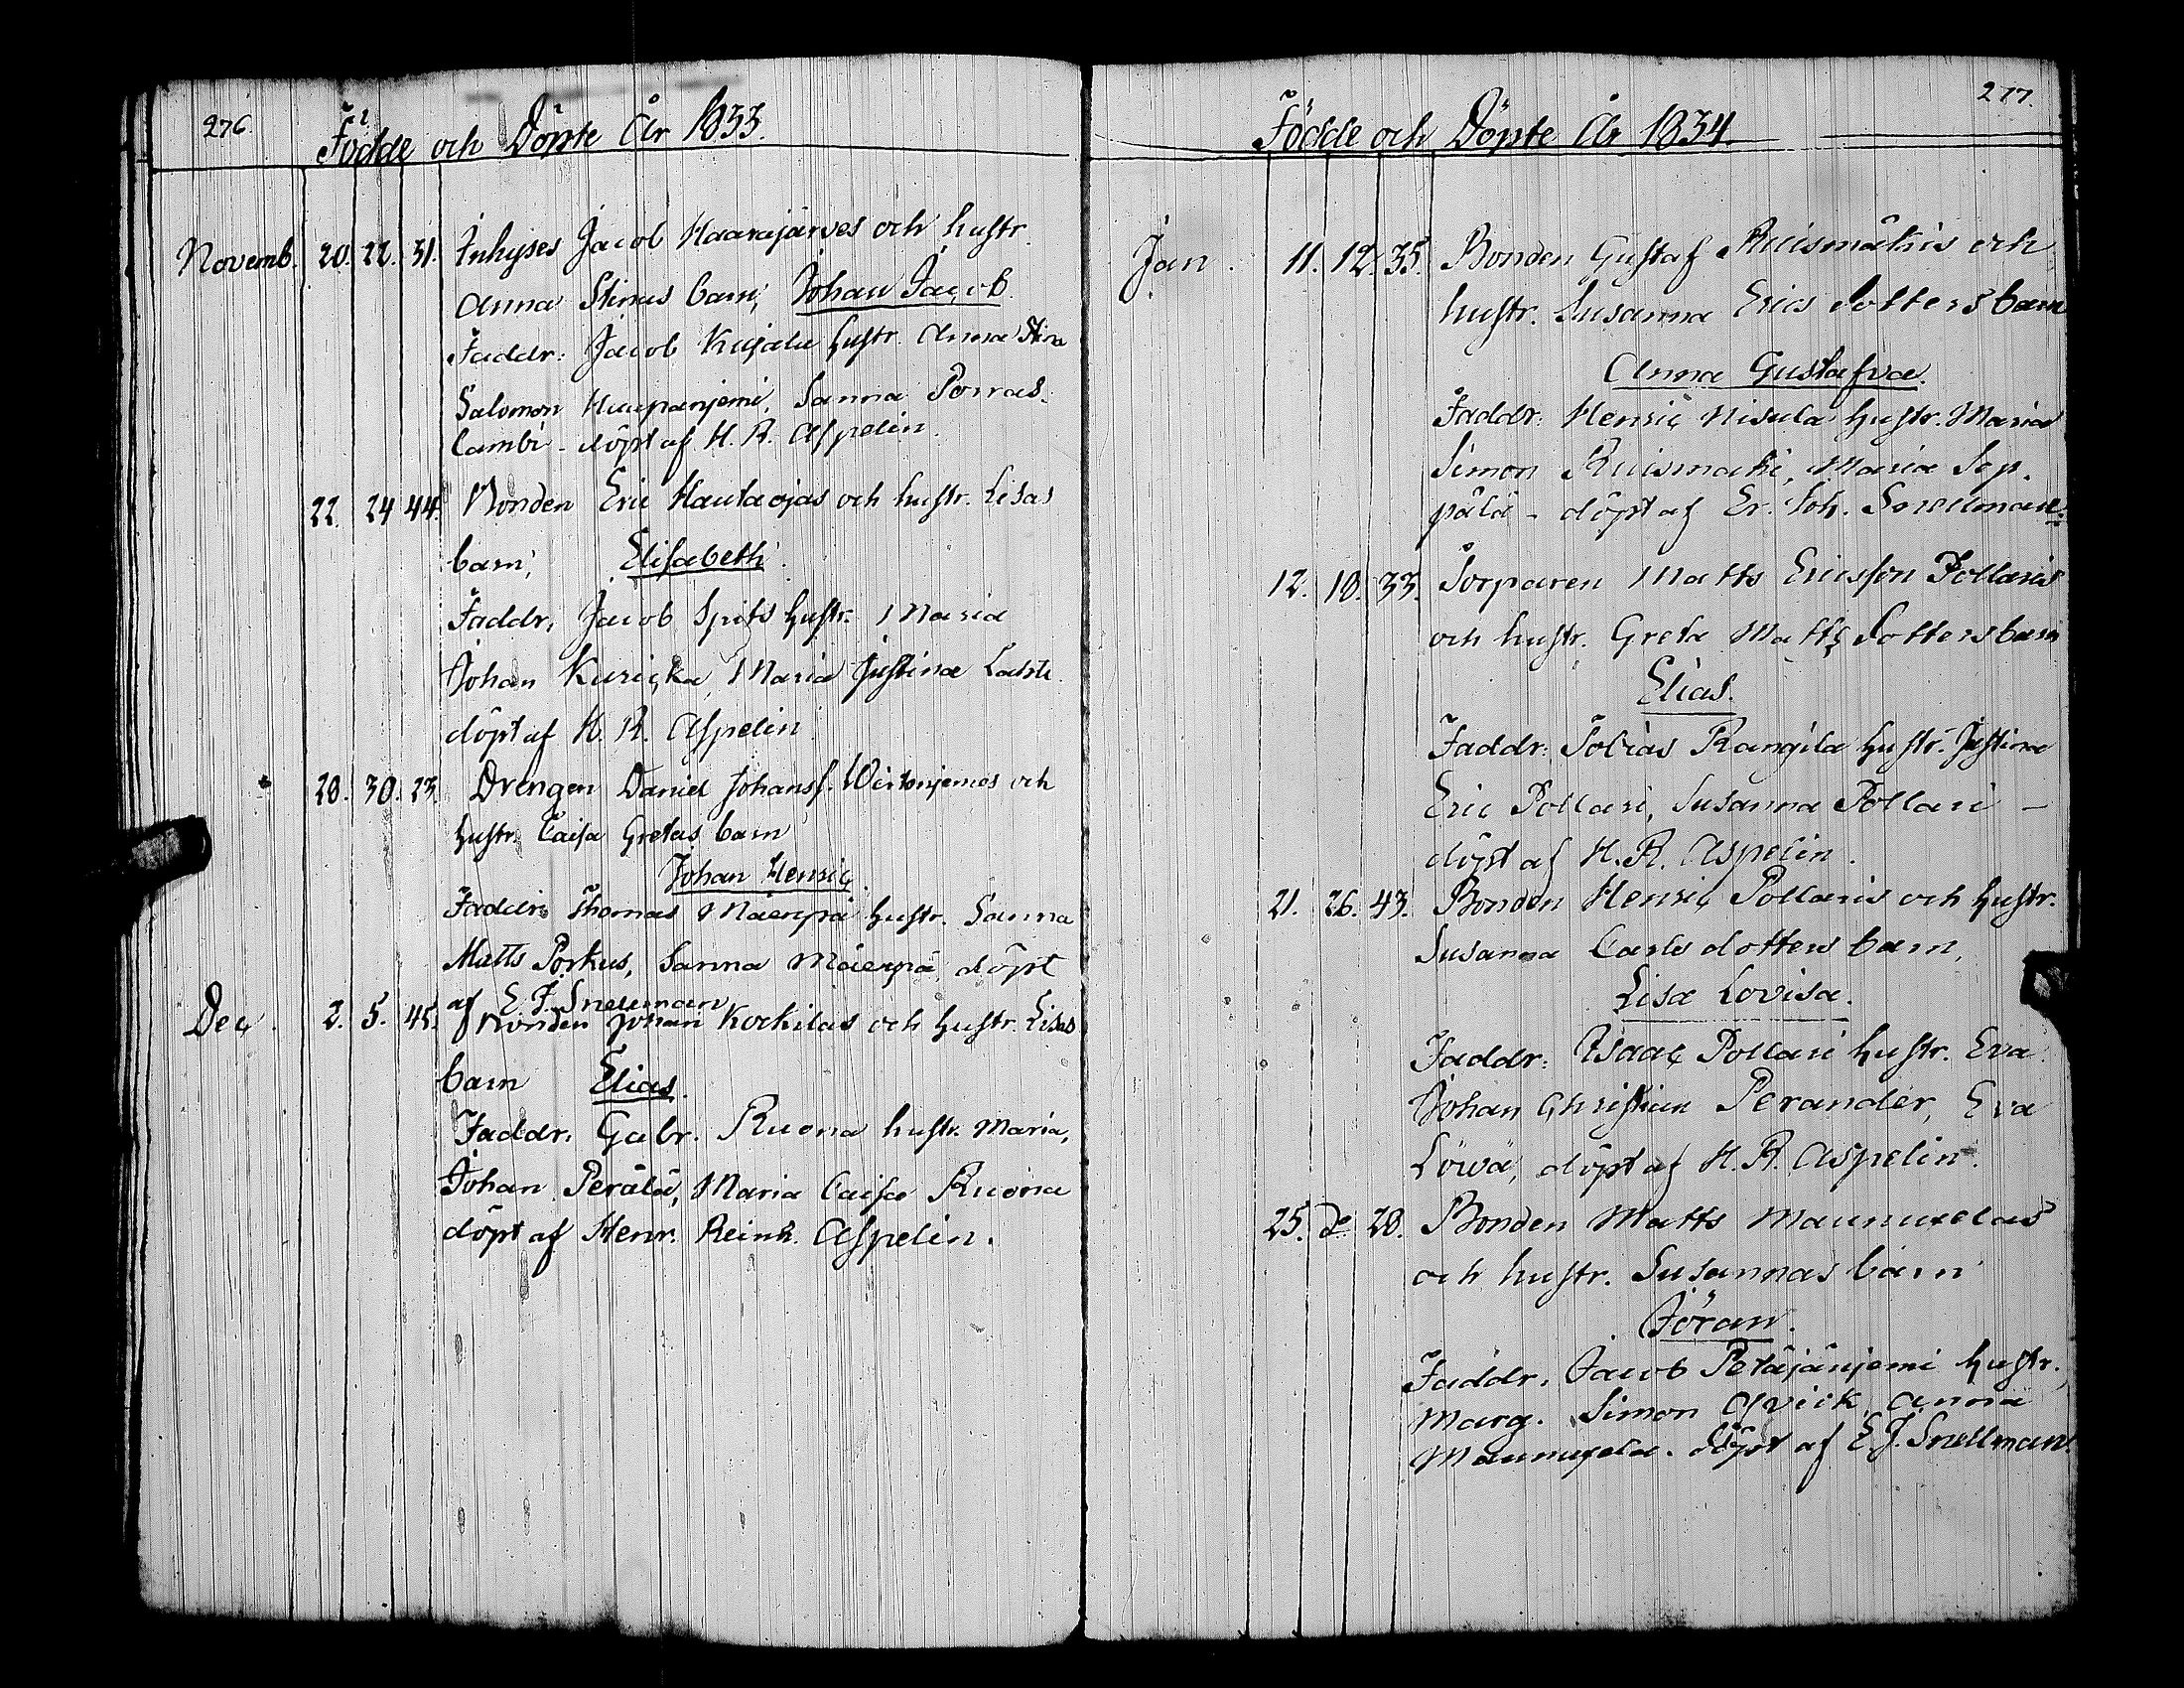 276.
Födde och Döpte År 1833.
Novemb. 20. 22. 31. Inhyses Jacob Haarajärves och hustr.
Anna Stinas barn, Johan Jacob.
Faddr: Jacob Kujala hustr. Anna Stina
Salomon Haapanjemi, Sanna Porras-
lambi - döpt af H. R. Aspelin.
22. 24 44. Bonden Eric Hautaojas och hustr. Lisas
barn, Elisabeth.
Faddr, Jacob Spets hustr. Maria
Johan Kuricka, Maria Justina Lahti.
döpt af H. R. Aspelin
28. 30. 23. Drengen Daniel Johanss. Wirkonjemes och
hustr. Caisa Gretas barn
Johan Henric.
Faddr: Thomas Mäenpä hustr. Sanna
Matts Porkus, Sanna Mäenpä, döpt
af E. J. Snellman
Dec. 2. 5. 45. Bonden Johan Kockilas och hustr. Lisas
barn Elias.
Faddr, Gabr. Ruona hustr. Maria,
Johan Perälä, Maria Caisa Ruona
döpt af Henr. Reinh. Aspelin.
277.
Födde och Döpte År 1834.
Jan. 11. 12. 35. Bonden Gustaf Ruismäkis och
hustr. Susanna Erics dotters barn
Anna Gustafva.
Faddr: Henric Nisula hustr. Maria
Simon Ruismäki, Maria Sep-
pälä - döpt af Er. Joh. Snellman.
12. 18. 33. Torparen Matts Ericsson Pollaris
och hustr. Greta Matts Dotters barn
Elias.
Faddr: Tobias Rangila hustr. Justina
Eric Pollari, Susanna Pollari -
döpt af H. R. Aspelin.
21. 26. 43. Bonden Henric Pollaris och hustr.
Susanna Carls dotters barn,
Lisa Lovisa.
Faddr: Isaac Pollari hustr. Eva
Johan Christian Perander, Eva
Löwä, döpt af H. R. Aspelin.
25. d. 28. Bonden Matts Maunuxelas
och hustr. Susannas barn
Göran.
Faddr, Jacob Petäjänjemi hustr.
Marg. Simon Qvick, Anna
Maunuxela. döpt af E. J. Snellman.